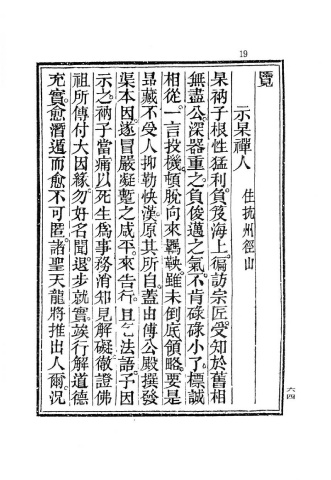 19
覽
示杲禪人 住杭州徑山
杲衲子根性猛利。負笈海上。徧訪宗匠。受知於舊相
無盡公。深器重之。負俊邁之氣。不肯碌碌小了。標誠
相從。一言投機。頓脫向來羈鞅。雖未到底領略。要是
昂藏不受人抑勒快漢。原其所自。蓋由傅公殿撰發
渠本因。遂冒嚴凝。暫之咸平。來告行。且乞法語。予因
示之。衲子當痛以死生爲事。務消知見解礙。徹證佛
祖所傳付大因緣。勿好名聞。退步就實。竢行解道德
充實。愈潛遁而愈不可匿。諸聖天龍將推出人爾。況
六四